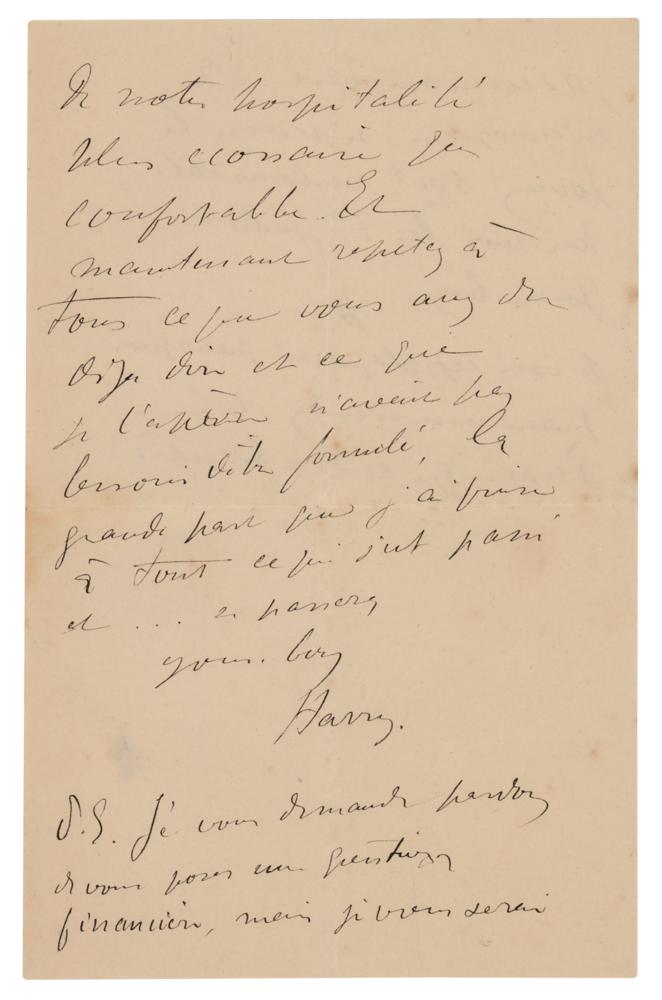 de notre hospitalité
plus ecossaise que
confortable. Et
maintenant repetez à
tous ce que vous avez du
deja dire et ce que
je l'espère n'avait pas
besoin d'être formulé, la
grande part que j'ai prise
à tout ce qui s'est passé
et ... se passera
your boy
Harry.
P.S. Je vous demande pardon
de vous poser une question
financière, mais je vous serai